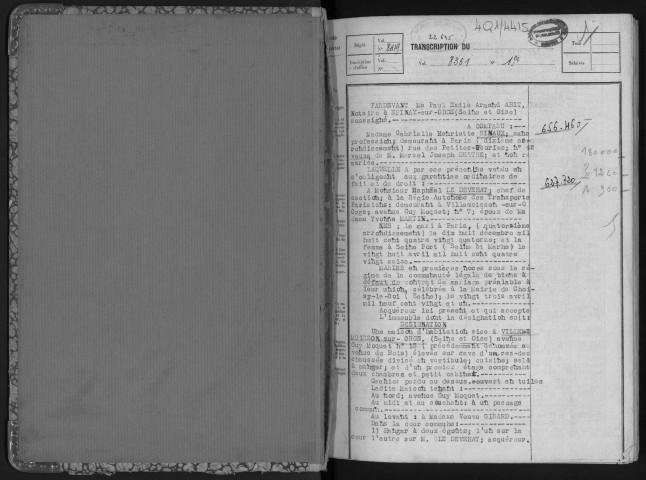 4Q1/4415
22 695
Dépôt Vol. 8419
TRANSCRIPTION DU
Vol. 8361 n° 1er
Taxe
Salaires
PARDEVANT Me Paul Emile Armand ABIT,
Notaire à EPINAY-sur-ORGE (Seine et Oise)
soussigné.
A COMPARU :
Madame Gabrielle Henriette BINAUX, sans
profession; demeurant à Paris (dixième ar-
rondissement) rue des Petites-Ecuries; n°
veuve de M. Marcel Joseph DEUTRE; et non re
mariée.
LAQUELLE a par ces présentes vendu en
s'obligeant aux garanties ordinaires de
fait et de droit :
A Monsieur Raphaël LE DEVEHAT; chef de
section; à la Régie Autonome des Transports
Parisiens; demeurant à Villemoisson -sur-O
Orge; avenue Guy Moquet; n° V; époux de Ma
dame Yvonne MARTIN.
NES : le mari à Paris, (quatorzième
arrondissement) le dix huit décembre mil
huit cent quatre vingt quatorze; et la
femme à Seine Port (Seine et Marne) le
vingt huit avril mil huit cent quatre
vingt seize.
MARIES en premières noces sous le ré-
gime de la communauté légale de biens à
défaut de contrat de mariage préalable à
leur union, célébrée à la Mairie de Choi-
sy-le-Roi (Seine); le vingt trois avril
mil neuf cent vingt et un.
Acquéreur ici présent et qui accepte
L'immeuble dont la désignation suit:
DESIGNATION
Une maison d'habitation sise à VILLE-
MOISSON sur-ORGE, (Seine et Oise) avenue
Guy Moquet n° 15 (précédemment dénommée a-
venue du Bois) élevée sur cave d'un rez-de-
chaussée divisé en vestibule; cuisine; salle
à manger; et d'un premier étage comprenant
deux chambres et petit cabinet.
Grenier perdu au dessus couvert en tuiles
Ladite Maison tenant :
Au nord; avenue Guy Moquet.
Au midi et au couchant: à un passage
commun.
Au levant : à Madame Veuve GIRARD.
Dans la cour commune:
1) Hangar à deux égouts; l'un sur la
cour l'autre sur M. OLE DEVEHAT; acquéreur.
656.465
627.720
180000